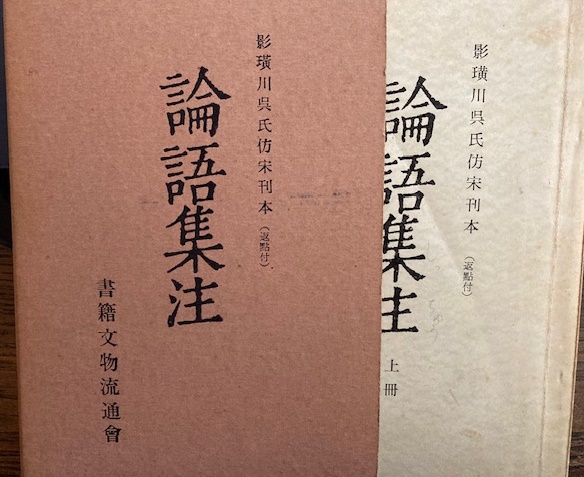 影璜川吳氏仿宋刊本(返點付)
論語集注
書籍文物流通會
影璜川吳氏仿宋刊本(返點付)
論語集注
上冊